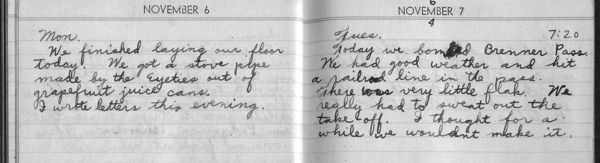 NOVEMBER 6
Mon.
We finished laying our floor
today. We got a stove pipe
made by the Eyeties out of
grapefruit juice cans.
I wrote letters this evening.
6
NOVEMBER 7
4
Tues. 7:20
Today we bombed Brenner Pass.
We had good weather and hit
a railroad line in the pass.
There was very little flak. We
really had to sweat out the
take off. I thought for a
while we wouldnt make it.